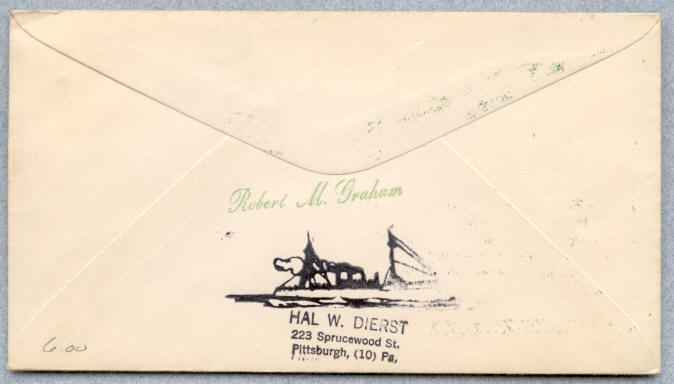 Robert M. Graham
HAL W. DIERST
223 Sprucewood St.
Pittsburgh, (10) Pa,
6.00